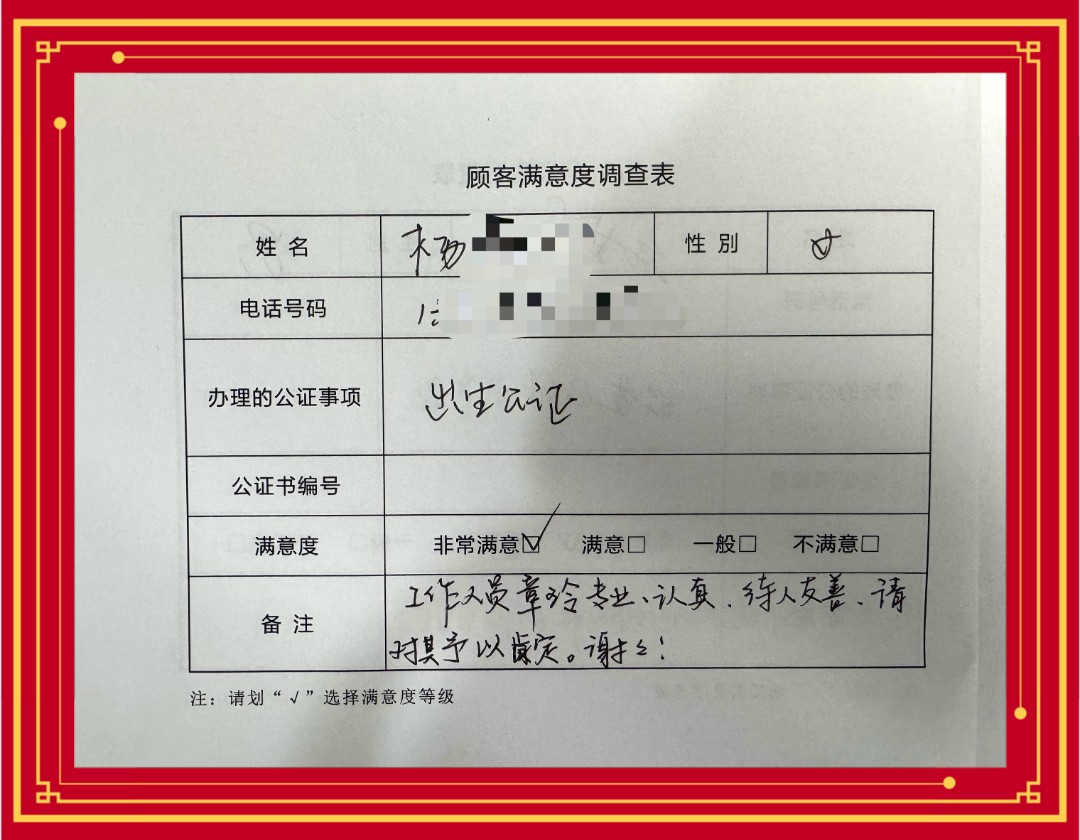 顾客满意度调查表
姓 名 杨 性 别 女
电话号码 1
办理的公证事项 出生公证
公证书编号
满意度 非常满意☑ 满意□ 一般□ 不满意□
备 注 工作人员章玲专业、认真、待人友善、请
对其予以肯定。谢谢！
注：请划“√”选择满意度等级